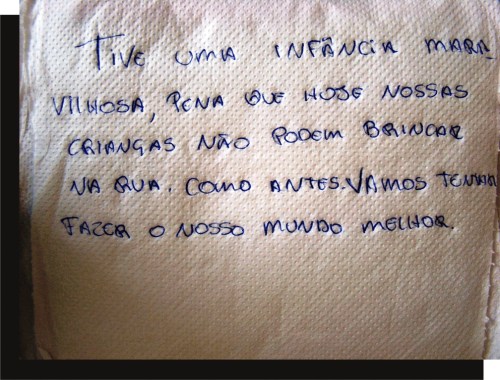 TIVE UMA INFÂNCIA MARA
VILHOSA, PENA QUE HOJE NOSSAS
CRIANÇAS NÃO PODEM BRINCAR
NA RUA. COMO ANTES. VAMOS TENTAR
FAZER O NOSSO MUNDO MELHOR.